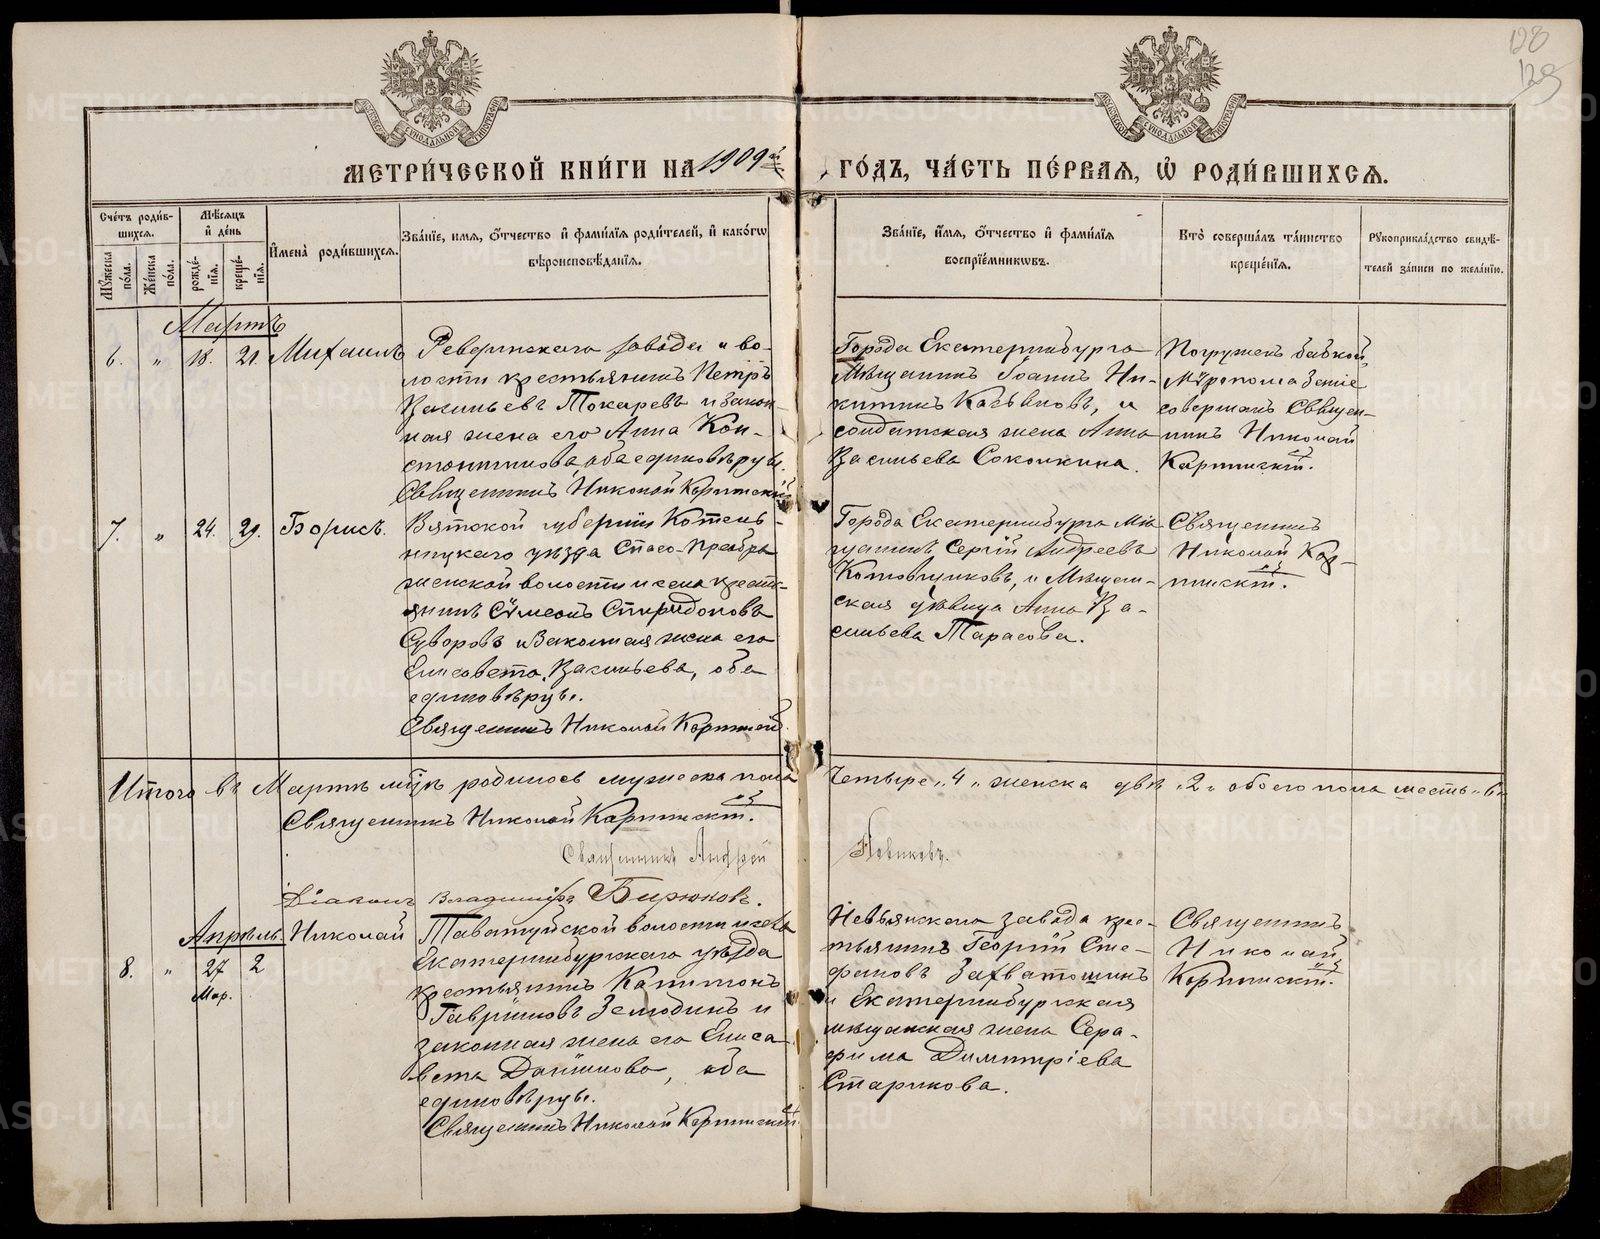 128
129
МЕТРИ́ЧЕСКОЙ КНИ́ГИ НА 1909й ГО́ДЪ, ЧА́СТЬ ПЕ́РВАЯ, Ѡ РОДИ́ВШИХСѦ.
Сче́тъ роди́в-
шихся.
Мѣ́сяцъ
и҆ де́нь
Мꙋ́жеска по́ла.
Же́нска по́ла.
рожде́-
нїя.
креще́-
нїя.
И҆мена̀ роди́вшихся.
Зва́нїе, имя, ѻ҆́тчество и҆ фами́лїя роди́телей, и҆ како́гѡ
вѣроисповѣ́данїя.
Зва́нїе, и҆́мя, ѻ҆́тчество и҆ фами́лїя
воспрїе́мникѡвъ.
Кто̀ соверша́лъ та́инство
креще́нїя.
Рꙋкоприкла́дство свидѣ́-
телей за́писи по жела́нїю.
Мартъ
6. „ 18. 21. Михаилъ
Ревдинскаго завода и во-
лости крестьянинъ Петръ
Васильевъ Токаревъ и закон-
ная жена его Анна Кон-
стантинова, оба единовѣрцы.
Священникъ Николай Картинскій
Города Екатеринбурга
Мѣщанинъ Іоаннъ Ни-
китинъ Касьяновъ, и
солдатская жена Анна
Васильева Соколкина.
Погруженъ бабкой,
Мѵропомазаніе
совершалъ Священ-
никъ Николай
Картинскій.
7. „ 24. 29. Борисъ.
Вятской губерніи Котель-
ничскаго уѣзда Спасо-Преобра
женской волости и села кресть-
янинъ Сѵмеонъ Спиридоновъ
Суворовъ и законная жена его
Елисавета Васильева, оба
единовѣрцы.
Священникъ Николай Картинскій
Города Екатеринбурга Мѣ
щанинъ Сергій Андреевъ
Котовщиковъ, и Мѣщан-
ская дѣвица Анна Ва-
сильева Тарасова.
Священникъ
Николай Кар-
тинскій.
Итого въ Мартѣ мцѣ родилось мужеска пола четыре „4„ женска двѣ „2„ обоего пола шесть „6„
Священникъ Николай Картинскій.
Священникъ Андрей Новиковъ.
Діаконъ Владиміръ Бирюковъ.
Апрѣль
8. „ 27 Мар. 2 Николай
Таватуйской волости и села
Екатеринбургскаго уѣзда
крестьянинъ Капитонъ
Гавріиловъ Землдинъ и
законная жена его Елиса
вета Даніилова, оба
единовѣрцы.
Священникъ Николай Картинскій
Невьянскаго завода кре-
стьянинъ Георгій Сте-
фановъ Захватошинъ
и Екатеринбургская
мѣщанская жена Сера-
фима Димитріева
Старикова.
Священникъ
Николай
Картинскій.